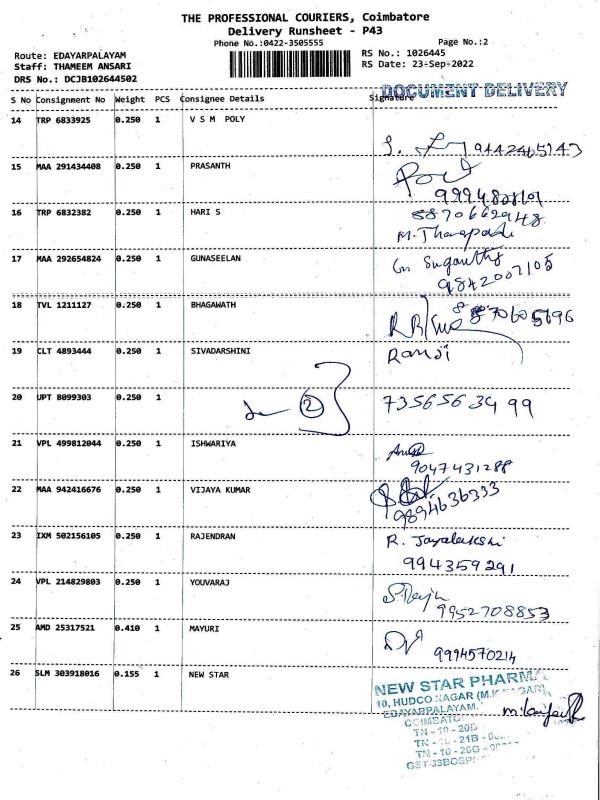 THE PROFESSIONAL COURIERS, Coimbatore
Delivery Runsheet - P43
Phone No.:0422-3505555 Page No.:2
Route: EDAYARPALAYAM RS No.: 1026445
Staff: THAMEEM ANSARI RS Date: 23-Sep-2022
DRS No.: DCJB102644502
DOCUMENT DELIVERY
S No Consignment No Weight PCS Consignee Details Signature
14 TRP 6833925 0.250 1 V S M POLY
15 MAA 291434408 0.250 1 PRASANTH
16 TRP 6832382 0.250 1 HARI S
8870662948
17 MAA 292654824 0.250 1 GUNASEELAN
9842007105
18 TVL 1211127 0.250 1 BHAGAWATH
19 CLT 4893444 0.250 1 SIVADARSHINI
Ramji
20 UPT 8099303 0.250 1 2 7356563499
21 VPL 499812044 0.250 1 ISHWARIYA
9047431288
22 MAA 942416676 0.250 1 VIJAYA KUMAR
9894636333
23 IXM 502156105 0.250 1 RAJENDRAN R. Jayalakshi
9943592 91
24 VPL 214829803 0.250 1 YOUVARAJ
9952708853
25 AMD 25317521 0.410 1 MAYURI
9994570214
26 SLM 303918016 0.155 1 NEW STAR
NEW STAR PHARMA
10, HUDCO NAGAR (M.K NAGAR),
EDAYARPALAYAM,
TN - 10 - 20B
TN - 21B
TN - 10 - 20G